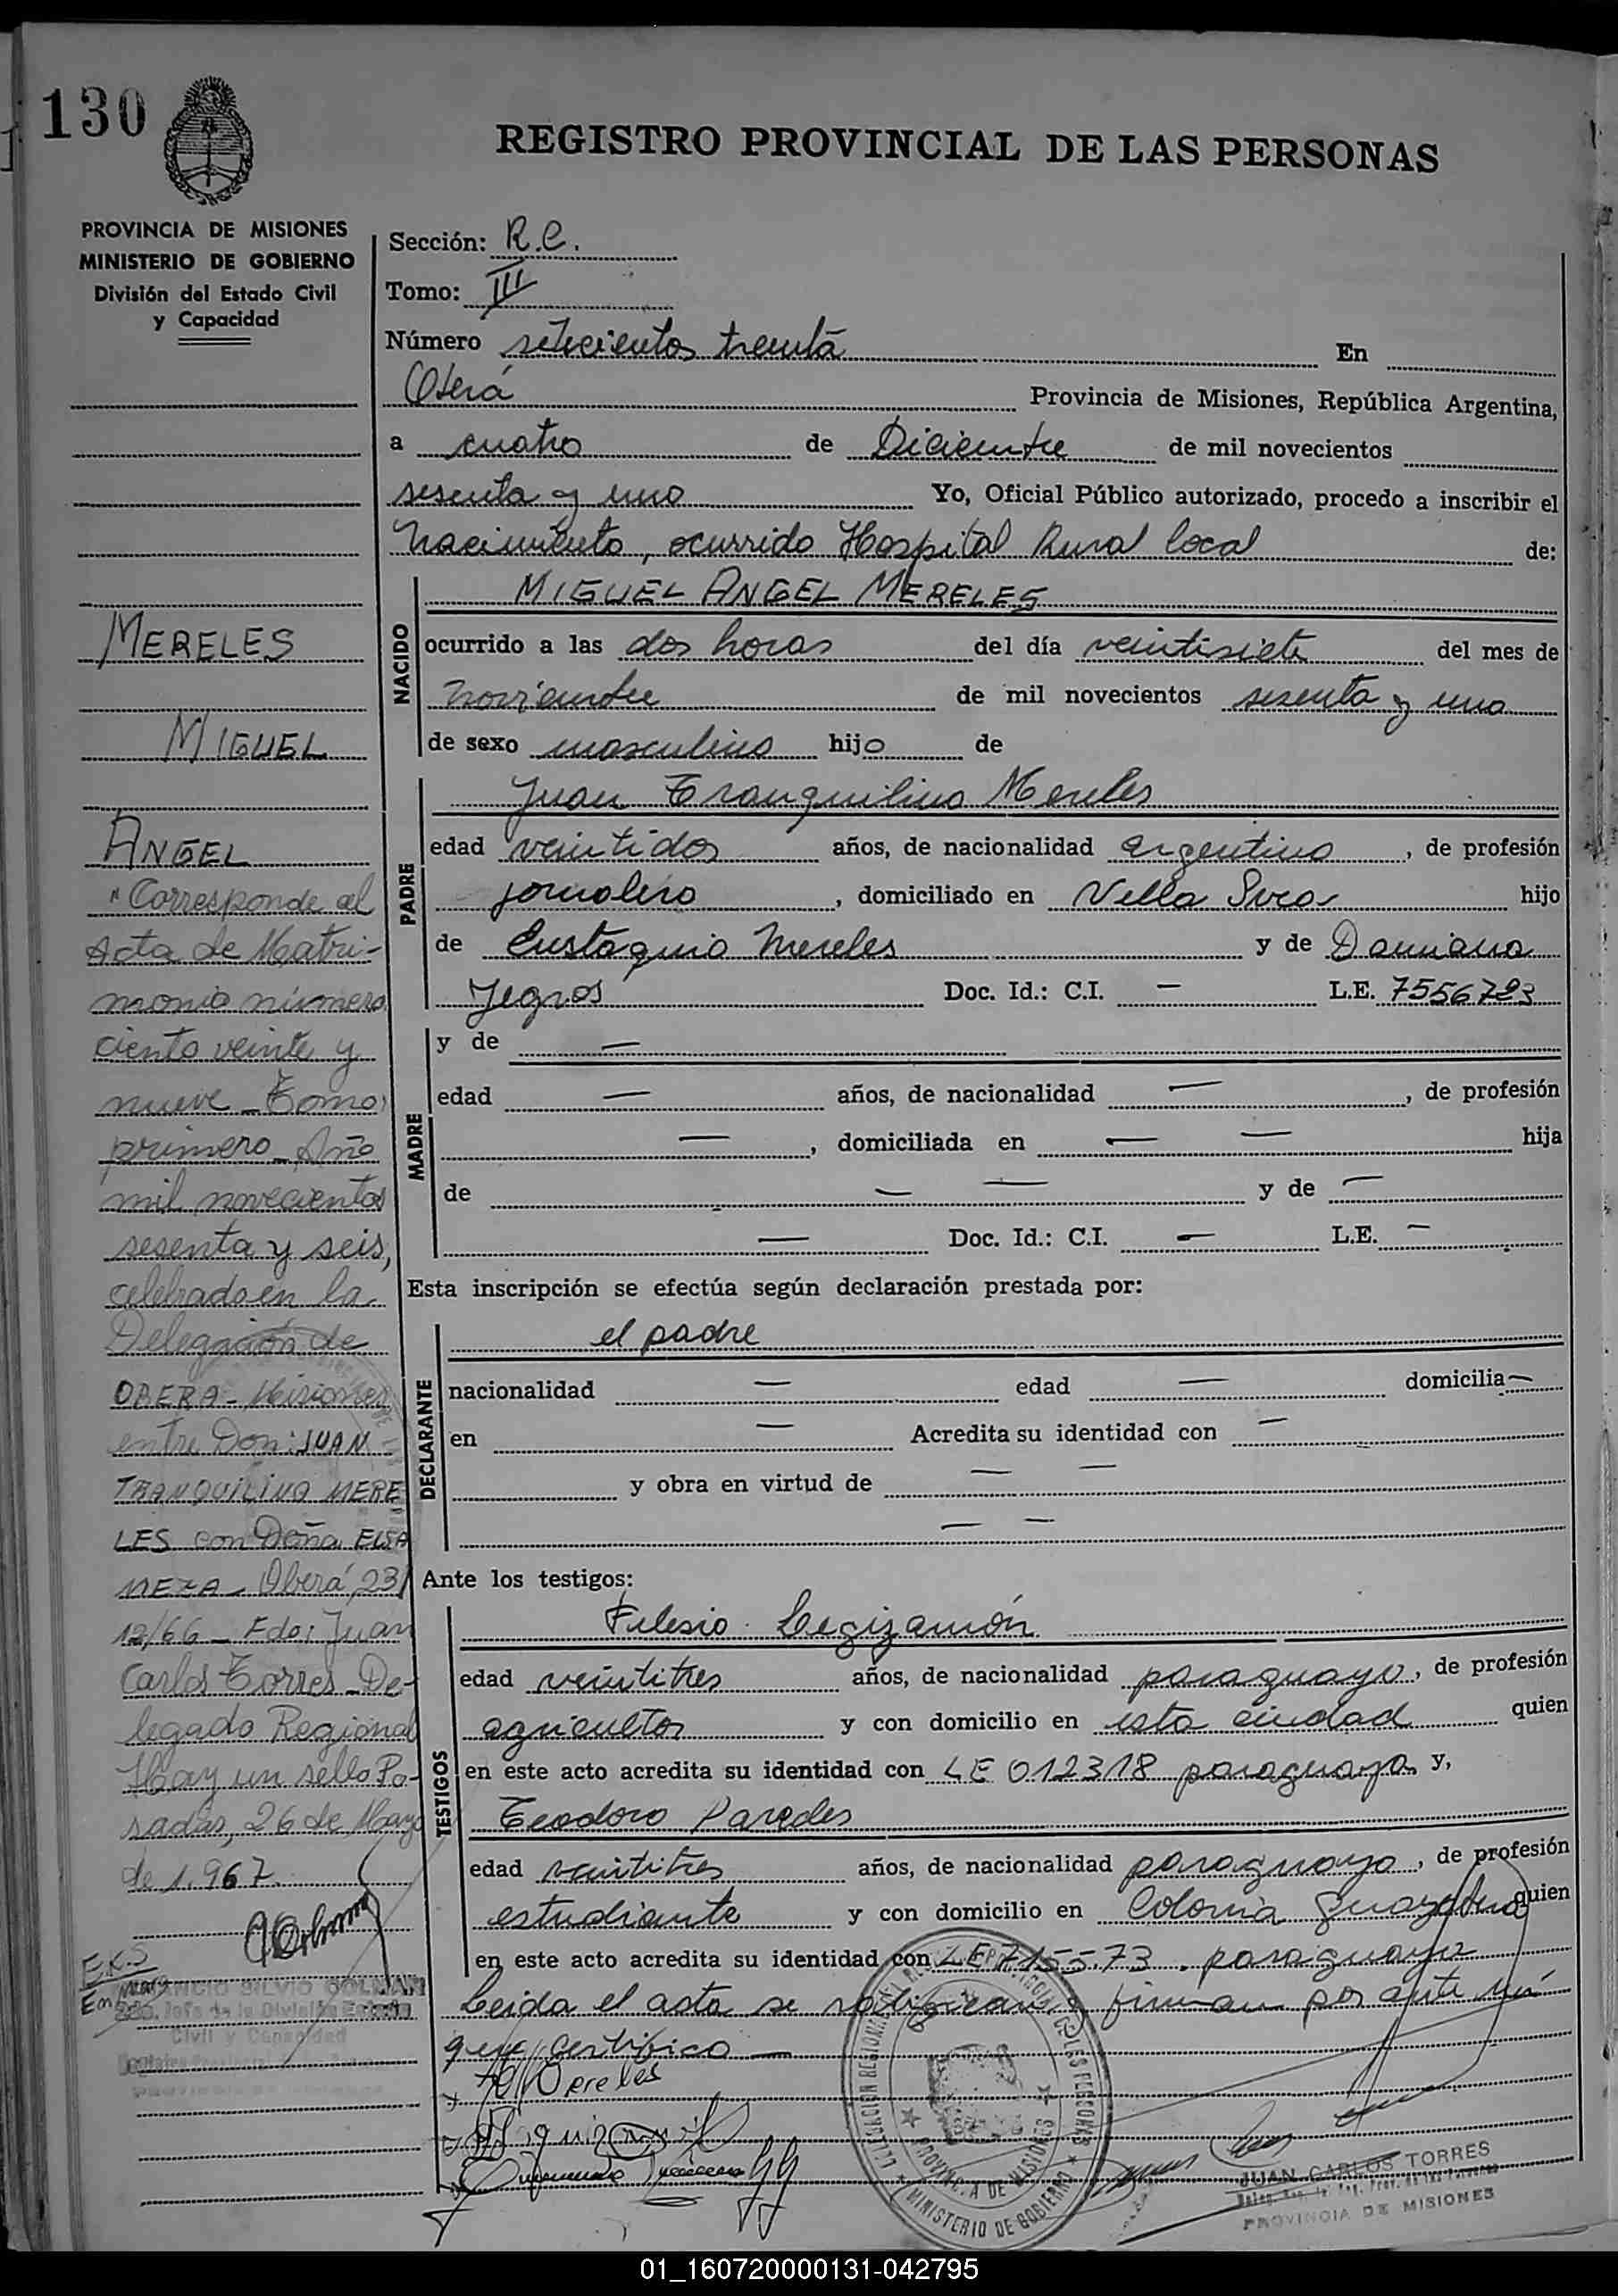 130
REGISTRO PROVINCIAL DE LAS PERSONAS
PROVINCIA DE MISIONES
MINISTERIO DE GOBIERNO
División del Estado Civil
y Capacidad
Sección: R.C.
Tomo: III
Número setecientos treinta En
Oberá Provincia de Misiones, República Argentina,
a cuatro de Diciembre de mil novecientos
sesenta y uno Yo, Oficial Público autorizado, procedo a inscribir el
nacimiento, ocurrido Hospital Rural local de:
NACIDO
MIGUEL ANGEL MERELES
ocurrido a las dos horas del día veintisiete del mes de
noviembre de mil novecientos sesenta y uno
de sexo masculino hijo de
PADRE
Juan Tranquilino Mereles
edad veintidos años, de nacionalidad argentino, de profesión
jornalero, domiciliado en Villa Svea hijo
de Eustaquio Mereles y de Damiana
Yegros Doc. Id.: C.I. — L.E. 7556723
MADRE
y de —
edad — años, de nacionalidad —, de profesión
—, domiciliada en — — hija
de — — y de —
— Doc. Id.: C.I. — L.E. —
Esta inscripción se efectúa según declaración prestada por:
DECLARANTE
el padre
nacionalidad — edad — domicilia —
en — Acredita su identidad con —
y obra en virtud de — —
— —
Ante los testigos:
TESTIGOS
Legizamón
edad veintitres años, de nacionalidad paraguayo, de profesión
agricultor y con domicilio en esta ciudad quien
en este acto acredita su identidad con LE 012318 paraguaya y,
Teodoro Paredes
edad veintitres años, de nacionalidad paraguayo, de profesión
estudiante y con domicilio en Colonia quien
en este acto acredita su identidad con LE 715573. paraguaya
Leida el acta se ratifican y firman por ante mí
que certifico —
Mereles
MERELES
MIGUEL
ANGEL
"Corresponde al
Acta de Matri-
monio número
ciento veinte y
nueve - Tomo
primero - Año
mil novecientos
sesenta y seis,
celebrado en la
Delegación de
OBERA - Misiones
entre Don: JUAN
TRANQUILINO MERE
LES con Doña ELSA
MEZA - Oberá, 23/
12/66 - Fdo: Juan
Carlos Torres - De-
legado Regional
Hay un sello Po-
sadas, 26 de Mayo
de 1.967.
SILVIO COLMAN
Jefe de la División Estado
Civil y Capacidad
PROVINCIA DE MISIONES
MINISTERIO DE GOBIERNO
JUAN CARLOS TORRES
PROVINCIA DE MISIONES
01_160720000131-042795